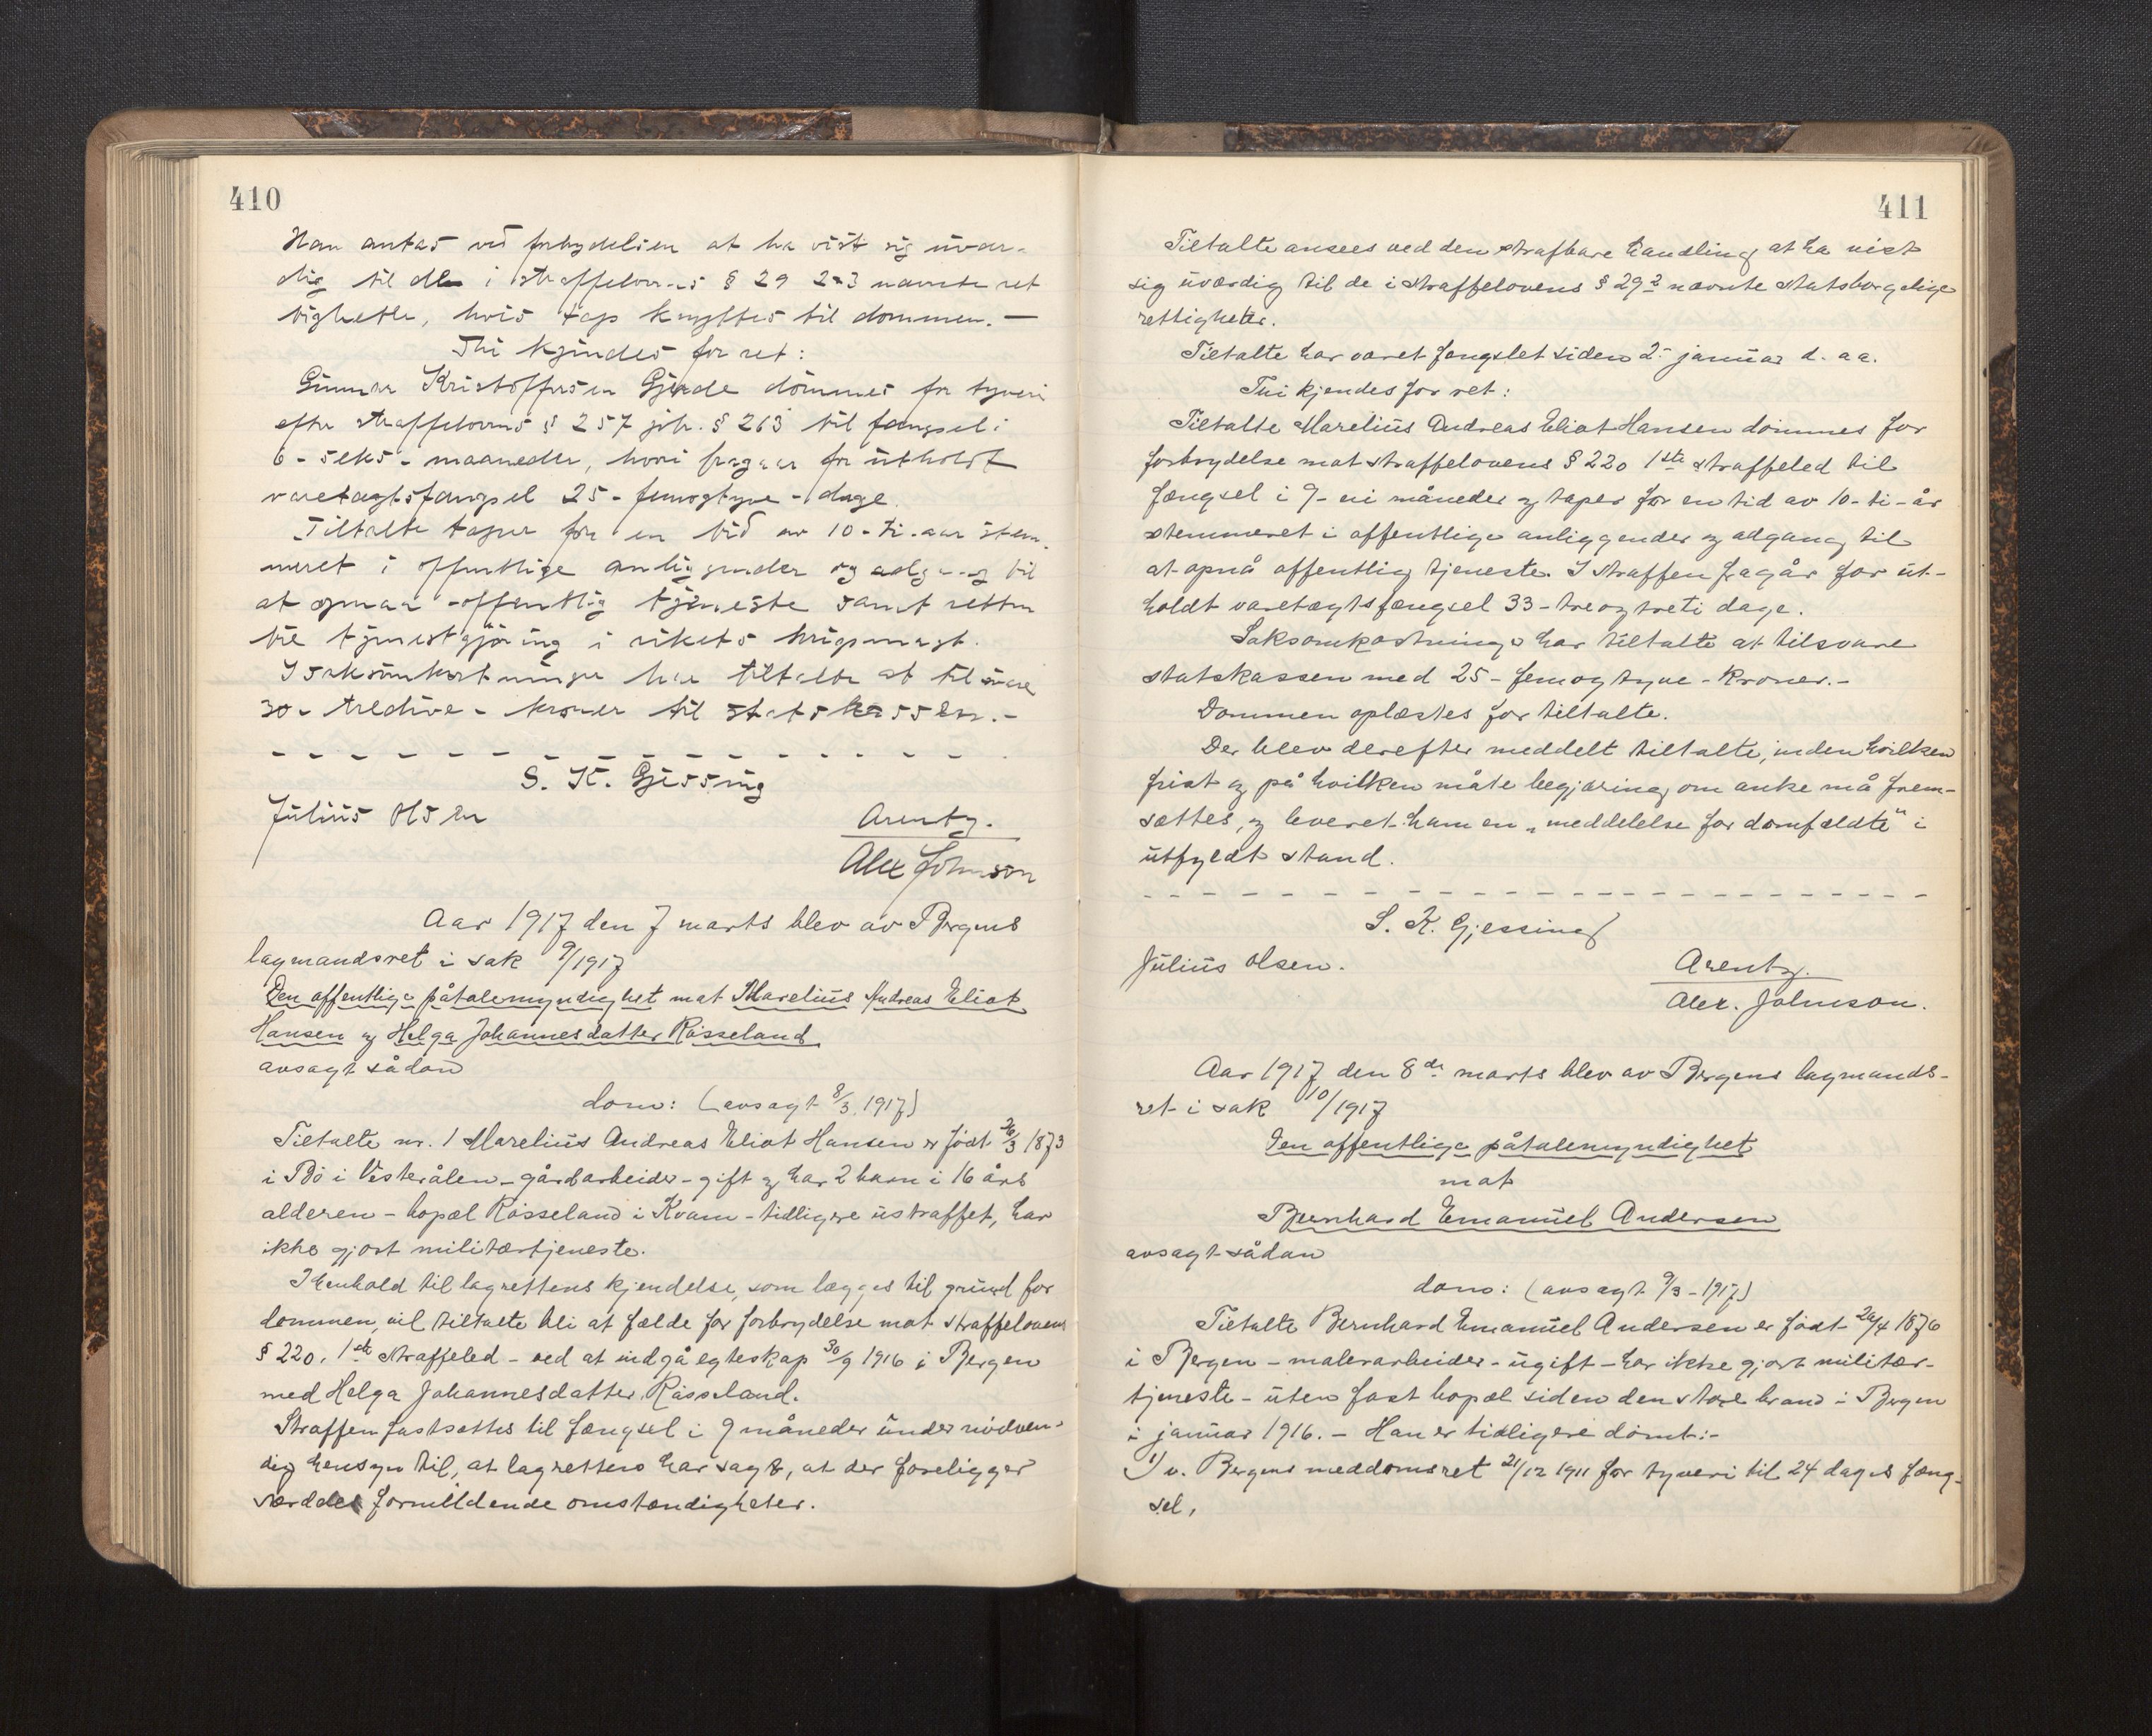 410
Han antas ved forbrydelsen at ha vist sig uvær-
dig til de i straffelovens § 29 2-3 nævnte ret
tigheter, hvis tap knyttes til dommen. —
Thi kjendes for ret:
Gunnar Kristoffersen Gjerde dömmes for tyveri
efter straffelovens § 257 jfr. § 263 til fængsel i
6 - seks - maaneder, hvori fragaar for utholdt
varetægtsfængsel 25 - femogtyve - dage.
Tiltalte taper for en tid av 10 - ti - aar stem-
meret i offentlige anliggender og adgang til
at opnaa offentlig tjeneste samt retten
til tjenestgjöring i rikets krigsmagt.
I saksomkostninger har tiltalte at tilsvare
30 - tredive - kroner til statskassen. -
S. K. Gjessing
Julius Olsen
Arentz.
Alex Johnson
Aar 1917 den 7 marts blev av Bergens
lagmandsret i sak 9/1917
Den offentlige påtalemyndighet mot Marelius Andreas Eliot
Hansen og Helga Johannesdatter Rösseland
avsagt sådan
dom: (avsagt 8/3 1917)
Tiltalte nr. 1 Marelius Andreas Eliot Hansen er födt 26/3 1873
i Bö i Vesterålen - gårdarbeider - gift og har 2 barn i 16 års
alderen - bopæl Rösseland i Kvam - tidligere ustraffet, har
ikke gjort militærtjeneste.
I henhold til lagrettens kjendelse, som lægges til grund for
dommen, vil tiltalte bli at fælde for forbrydelse mot straffelovens
§ 220, 1ste straffeled - ved at indgå egteskap 30/9 1916 i Bergen
med Helga Johannesdatter Rösseland.
Straffen fastsættes til fængsel i 9 måneder under nödven-
dig hensyn til, at lagretten har sagt, at der foreligger
særdeles formildende omstændigheter.
411
Tiltalte ansees ved den strafbare handling at ha vist
sig uværdig til de i straffelovens § 29 2 nævnte statsborgelige
rettigheter.
Tiltalte har været fængslet siden 2. januar d. aa.
Thi kjendes for ret:
Tiltalte Marelius Andreas Eliot Hansen dömmes for
forbrydelse mot straffelovens § 220 1ste straffeled til
fængsel i 9 - ni måneder og taper for en tid av 10 - ti - år
stemmeret i offentlige anliggender og adgang til
at opnå offentlig tjeneste. I straffen fragår for ut-
holdt varetægtsfængsel 33 - treogtreti dage.
Saksomkostninge har tiltalte at tilsvare
statskassen med 25 - femogtyve - kroner. -
Dommen oplæstes for tiltalte.
Der blev derefter meddelt tiltalte, inden hvilken
frist og på hvilken måte begjæring om anke må frem-
sættes, og leveret ham en "meddelelse for domfældte" i
utfyldt stand.
S. K. Gjessing
Julius Olsen.
Arentz.
Alex. Johnson.
Aar 1917 den 8de marts blev av Bergens lagmands-
ret i sak 10/1917
Den offentlige påtalemyndighet
mot
Bernhard Emanuel Andersen
avsagt sådan
dom: (avsagt 9/3 - 1917)
Tiltalte Bernhard Emanuel Andersen er födt 20/4 1876
i Bergen - malerarbeider - ugift - har ikke gjort militær-
tjeneste - uten fast bopæl siden den store brand i Bergen
i januar 1916. - Han er tidligere dömt: -
1) v. Bergens meddomsret 21/12 1911 for tyveri til 24 dages fæng-
sel,